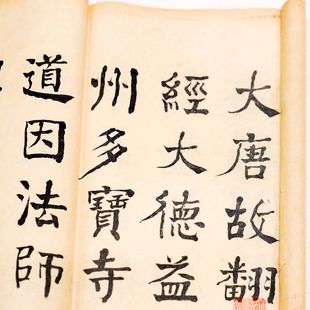 大唐故翻
經大德益
州多寶寺
道因法師